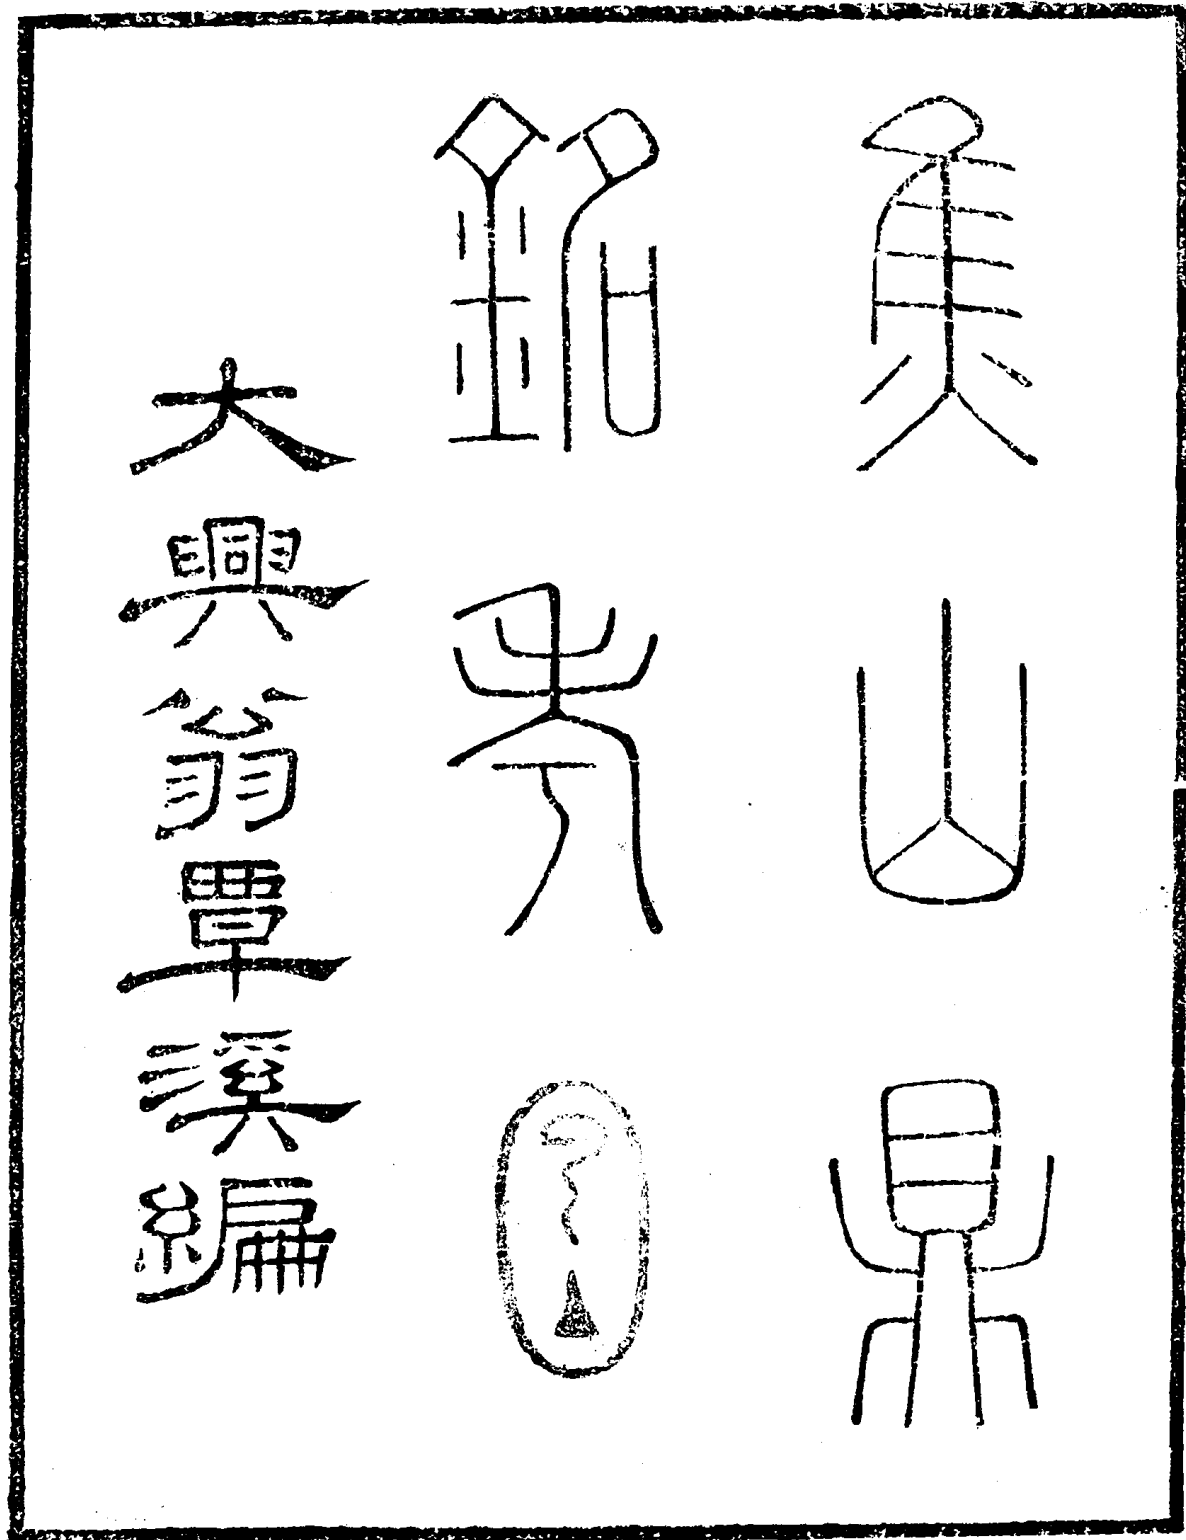 焦山鼎
銘考
大興翁覃溪編